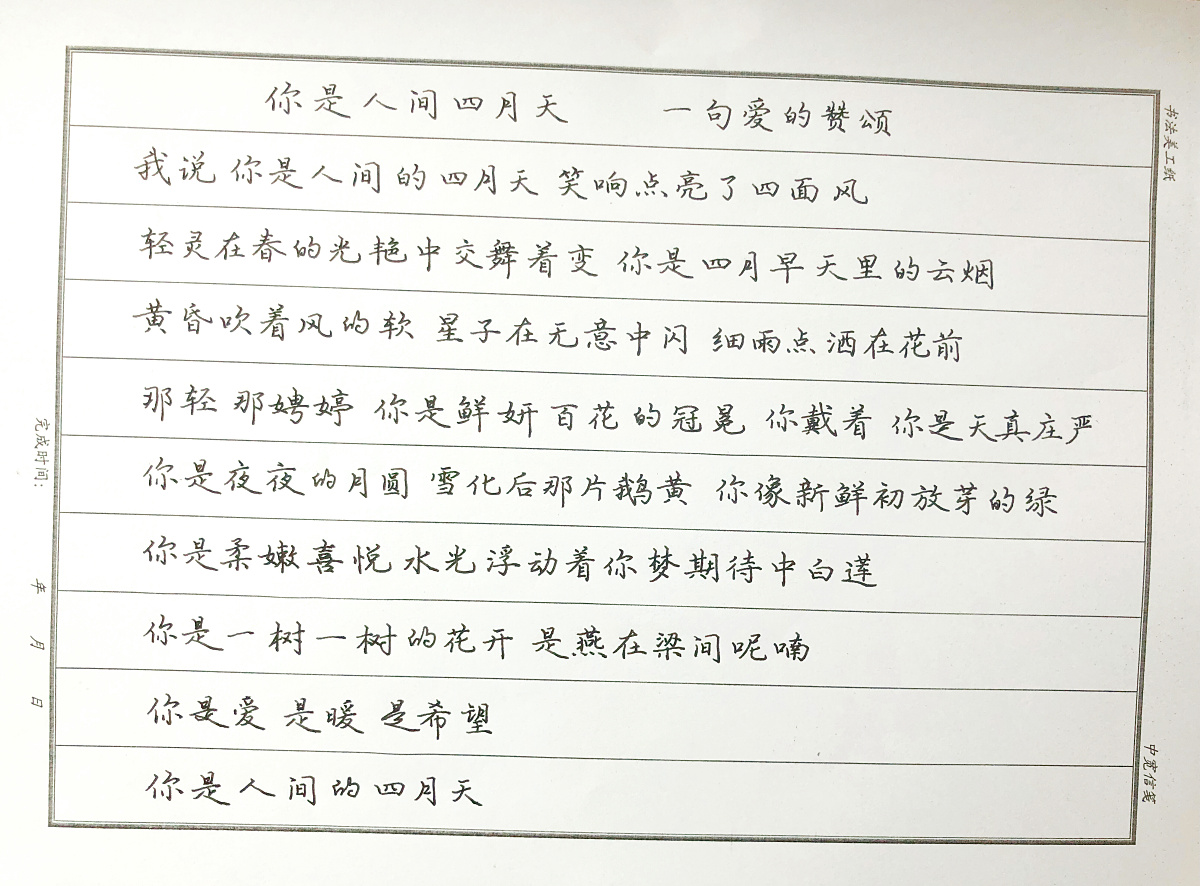 你是人间四月天 一句爱的赞颂
我说 你是人间的四月天 笑响点亮了四面风
轻灵在春的光艳中交舞着变 你是四月早天里的云烟
黄昏吹着风的软 星子在无意中闪 细雨点洒在花前
那轻 那娉婷 你是鲜妍百花的冠冕 你戴着 你是天真庄严
你是夜夜的月圆 雪化后那片鹅黄 你像新鲜初放芽的绿
你是柔嫩喜悦 水光浮动着你梦期待中白莲
你是一树一树的花开 是燕在梁间呢喃
你是爱 是暖 是希望
你是人间的四月天
书法美工纸
完成时间： 年 月 日
中宪信笺